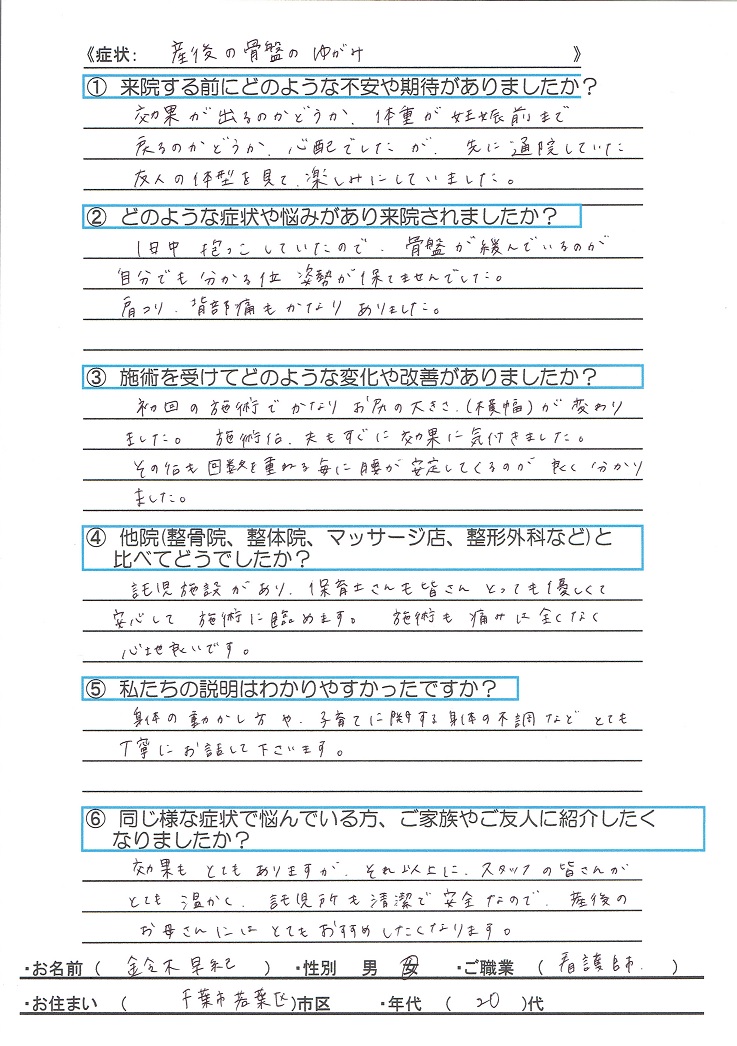 《症状: 産後の骨盤のゆがみ 》
① 来院する前にどのような不安や期待がありましたか？
効果が出るのかどうか、体重が妊娠前まで
戻るのかどうか、心配でしたが、先に通院していた
友人の体型を見て、楽しみにしていました。
② どのような症状や悩みがあり来院されましたか？
1日中抱っこしていたので、骨盤が緩んでいるのが
自分でも分かる位姿勢が保てませんでした。
肩コリ、背部痛もかなりありました。
③ 施術を受けてどのような変化や改善がありましたか？
初回の施術でかなりお尻の大きさ、(横幅)が変わり
ました。施術后、夫もすぐに効果に気付きました。
その后も回数を重ねる毎に腰が安定してくるのが良く分かり
ました。
④ 他院(整骨院、整体院、マッサージ店、整形外科など)と
比べてどうでしたか？
託児施設があり、保育士さんも皆さんとっても優しくて
安心して施術に臨めます。施術も痛みは全くなく
心地良いです。
⑤ 私たちの説明はわかりやすかったですか？
身体の動かし方や、子育てに関する身体の不調などとても
丁寧にお話して下さいます。
⑥ 同じ様な症状で悩んでいる方、ご家族やご友人に紹介したく
なりましたか？
効果もとてもありますが、それ以上に、スタッフの皆さんが
とても温かく、託児所も清潔で安全なので、産後の
お母さんにはとてもおすすめしたくなります。
・お名前 ( 鈴木早紀 ) ・性別 男 女 ・ご職業 ( 看護師 )
・お住まい ( 千葉市若葉区)市区 ・年代 ( 20 )代